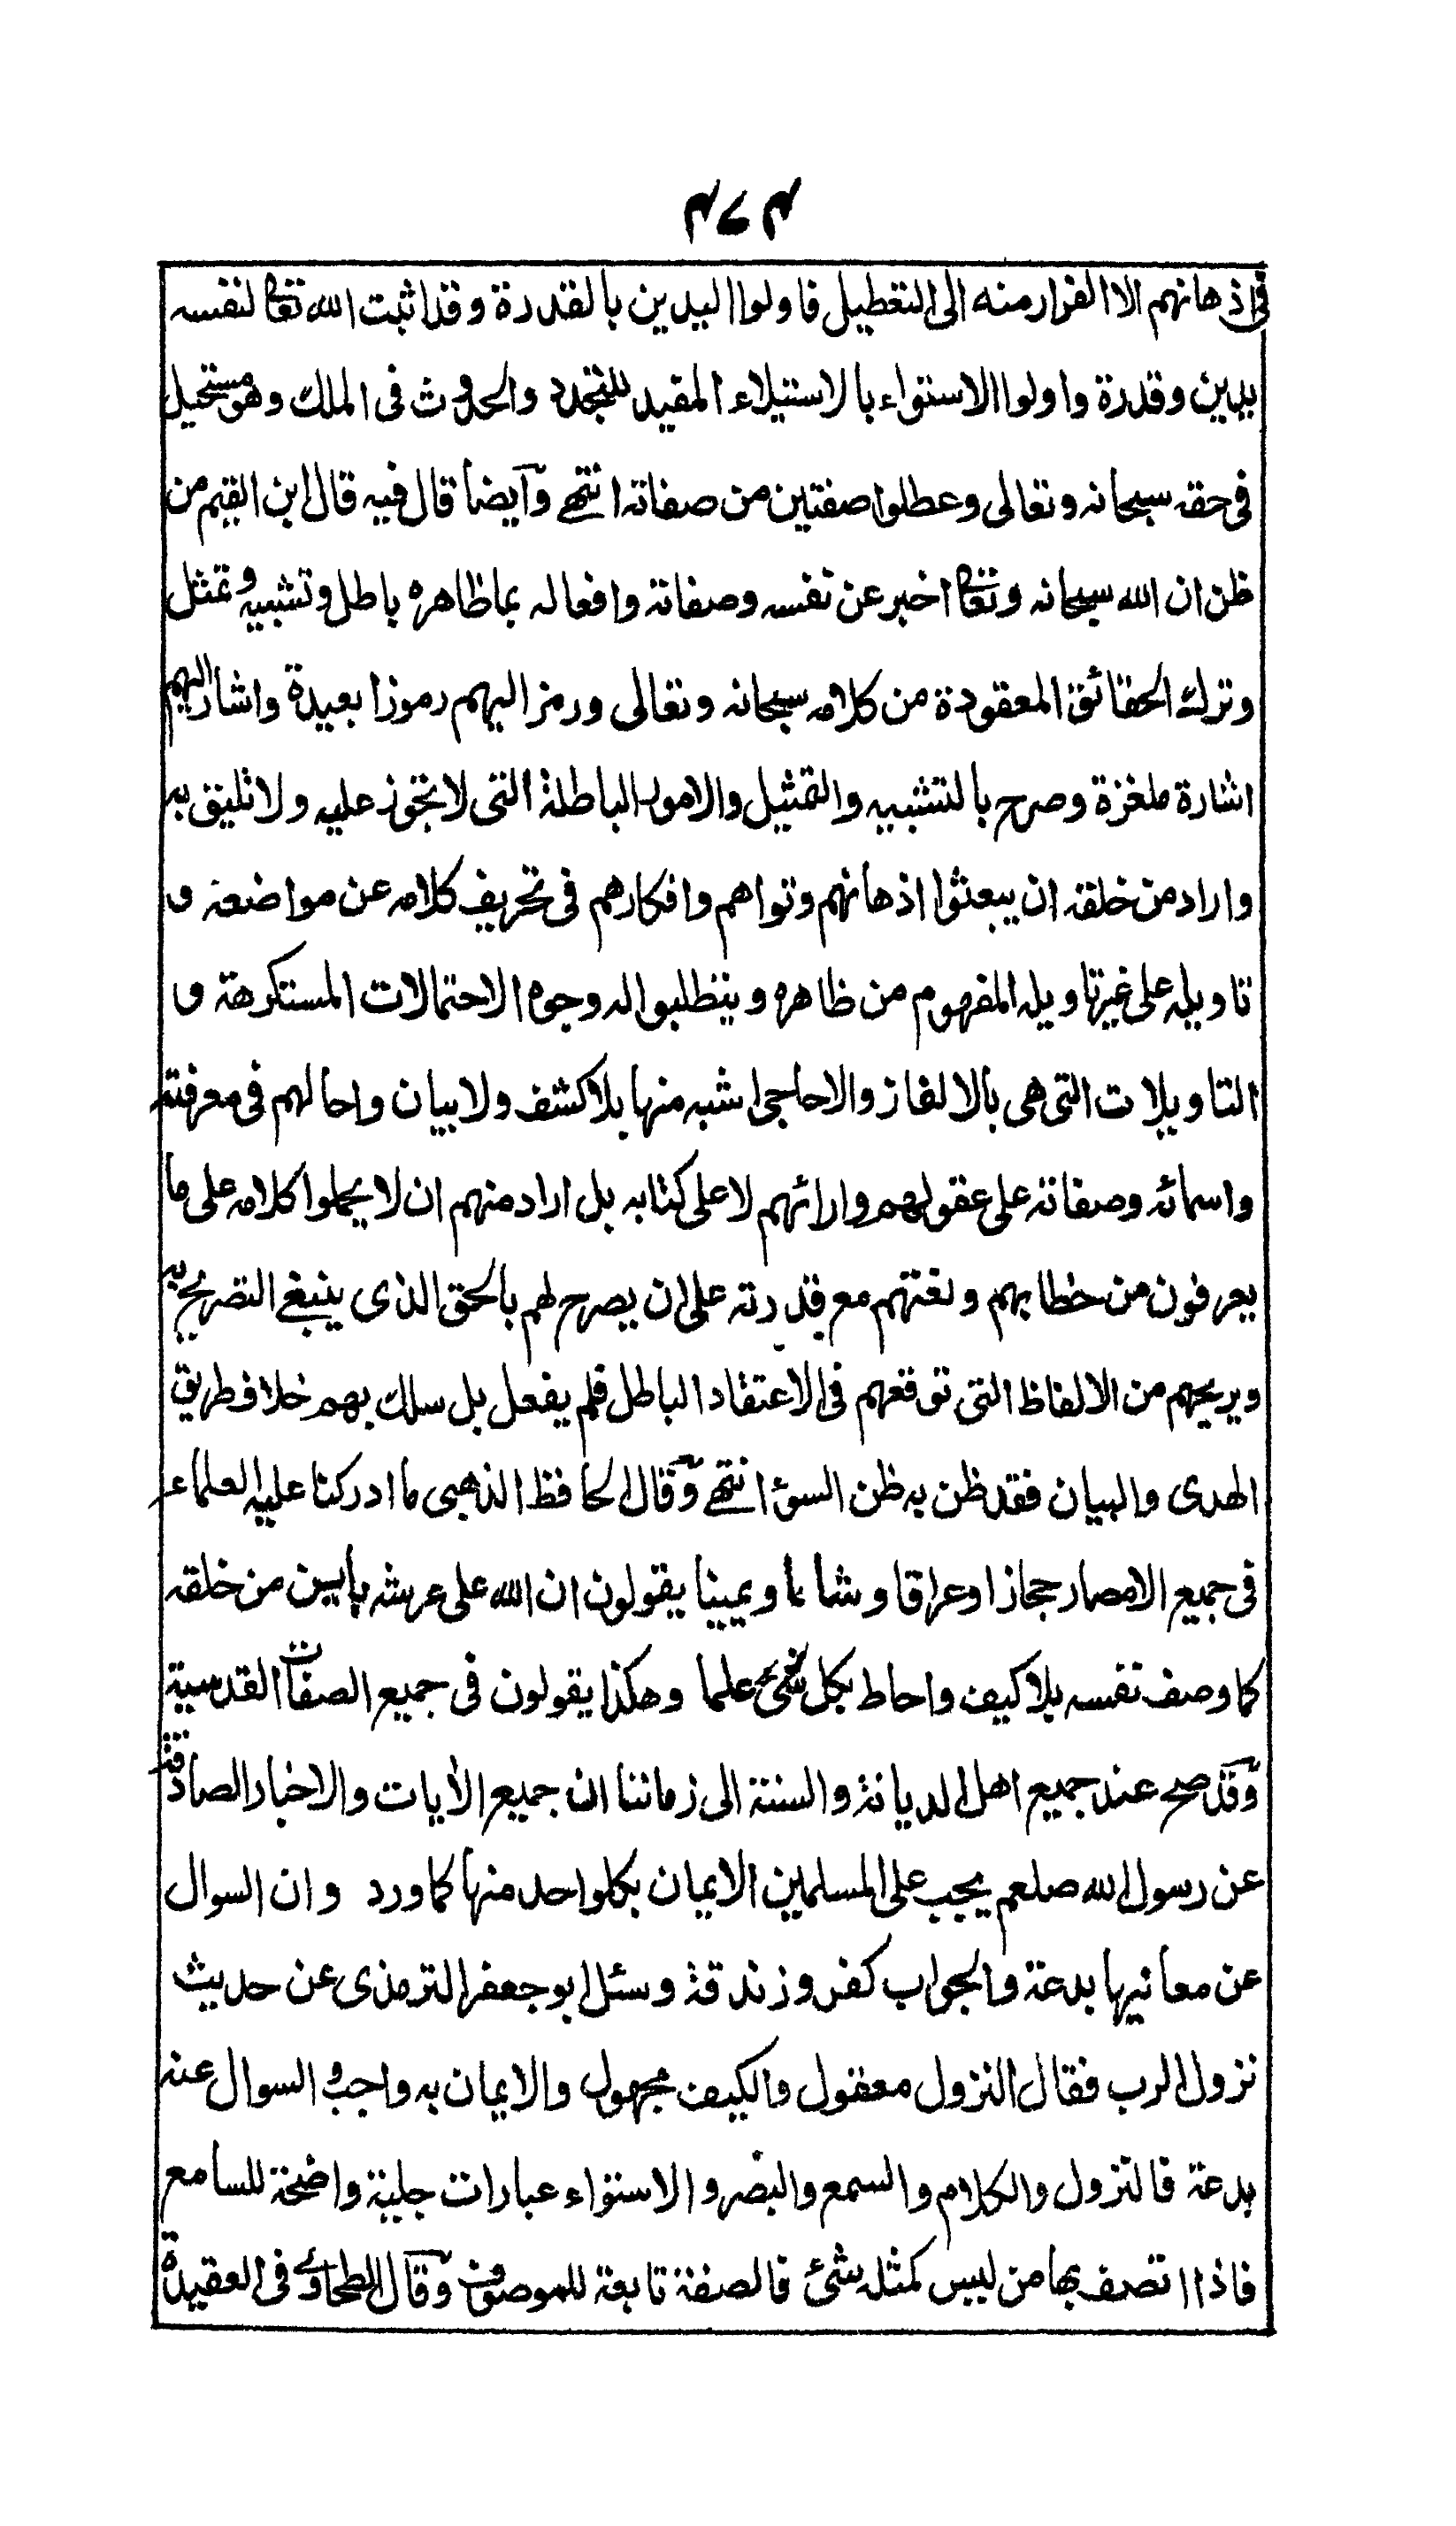 في اذهانهم الا الفرار منه الى التعطيل فاولوا اليدين بالقدرة وقد اثبت الله تعا لنفسه
يدين وقدرة واولوا الاستواء بالاستيلاء المقيد للتجدد والحدوث فى الملك وهو مستحيل
فى حقه سبحانه وتعالى وعطلوا صفتين من صفاته انتهے وآيضا قال فيه قال ابن القيم من
ظن ان الله سبحانه وتعا اخبر عن نفسه وصفاته وافعاله بما ظاهره باطل وتشبيه وتمثل
وترك الحقائق المعقودة من كلامه سبحانه وتعالى ورمز اليهم رموزا بعيدة واشار اليهم
اشارة ملغزة وصرح بالتشبيه والتمثيل والامور الباطلة التى لا تجوز عليه ولا تليق به
واراد من خلقه ان يبعثوا اذهانهم وتواهم وافكارهم فى تحريف كلامه عن مواضعه و
تاويله على غير تاويله المفهوم من ظاهره ويتطلبوا له وجوه الاحتمالات المستكرهة و
التاويلات التى هى بالالغاز والاحاجى اشبه منها بلا كشف ولا بيان واحالهم فى معرفته
واسمائه وصفاته على عقولهم وارائهم لا على كتابه بل اراد منهم ان لا يحملوا كلامه على ما
يعرفون من خطابهم ولغتهم مع قدرته على ان يصرح لهم بالحق الذى ينبغے التصريح به
ويريحهم من الالفاظ التى توقعهم فى الاعتقاد الباطل فلم يفعل بل سلك بهم خلاف طريق
الهدى والبيان فقد ظن به ظن السوء انتهے وقال الحافظ الذهبى ما ادركنا عليه العلماء
فى جميع الامصار حجازا وعراقا وشاما ويمينا يقولون ان الله على عرشه بايين من خلقه
كما وصف نفسه بلا كيف واحاط بكل شئ علما وهكذا يقولون فى جميع الصفات القدسية
وقد صح عند جميع اهل الديانة والسنة الى زماننا ان جميع الأيات والاخبار الصادقة
عن رسول الله صلعم يجب على المسلمين الايمان بكلواحد منها كما ورد وان السوال
عن معانيها بدعة والجواب كفر وزندقة وسئل ابو جعفر الترمذى عن حديث
نزول الرب فقال النزول معقول والكيف مجهول والايمان به واجب و السوال عنه
بدعة فالنزول والكلام والسمع والبصر والاستواء عبارات جلية واضحة للسامع
فاذا اتصف بها من ليس كمثله شئ فالصفة تابعة للموصوف وقال الطحاوے فى العقيدة